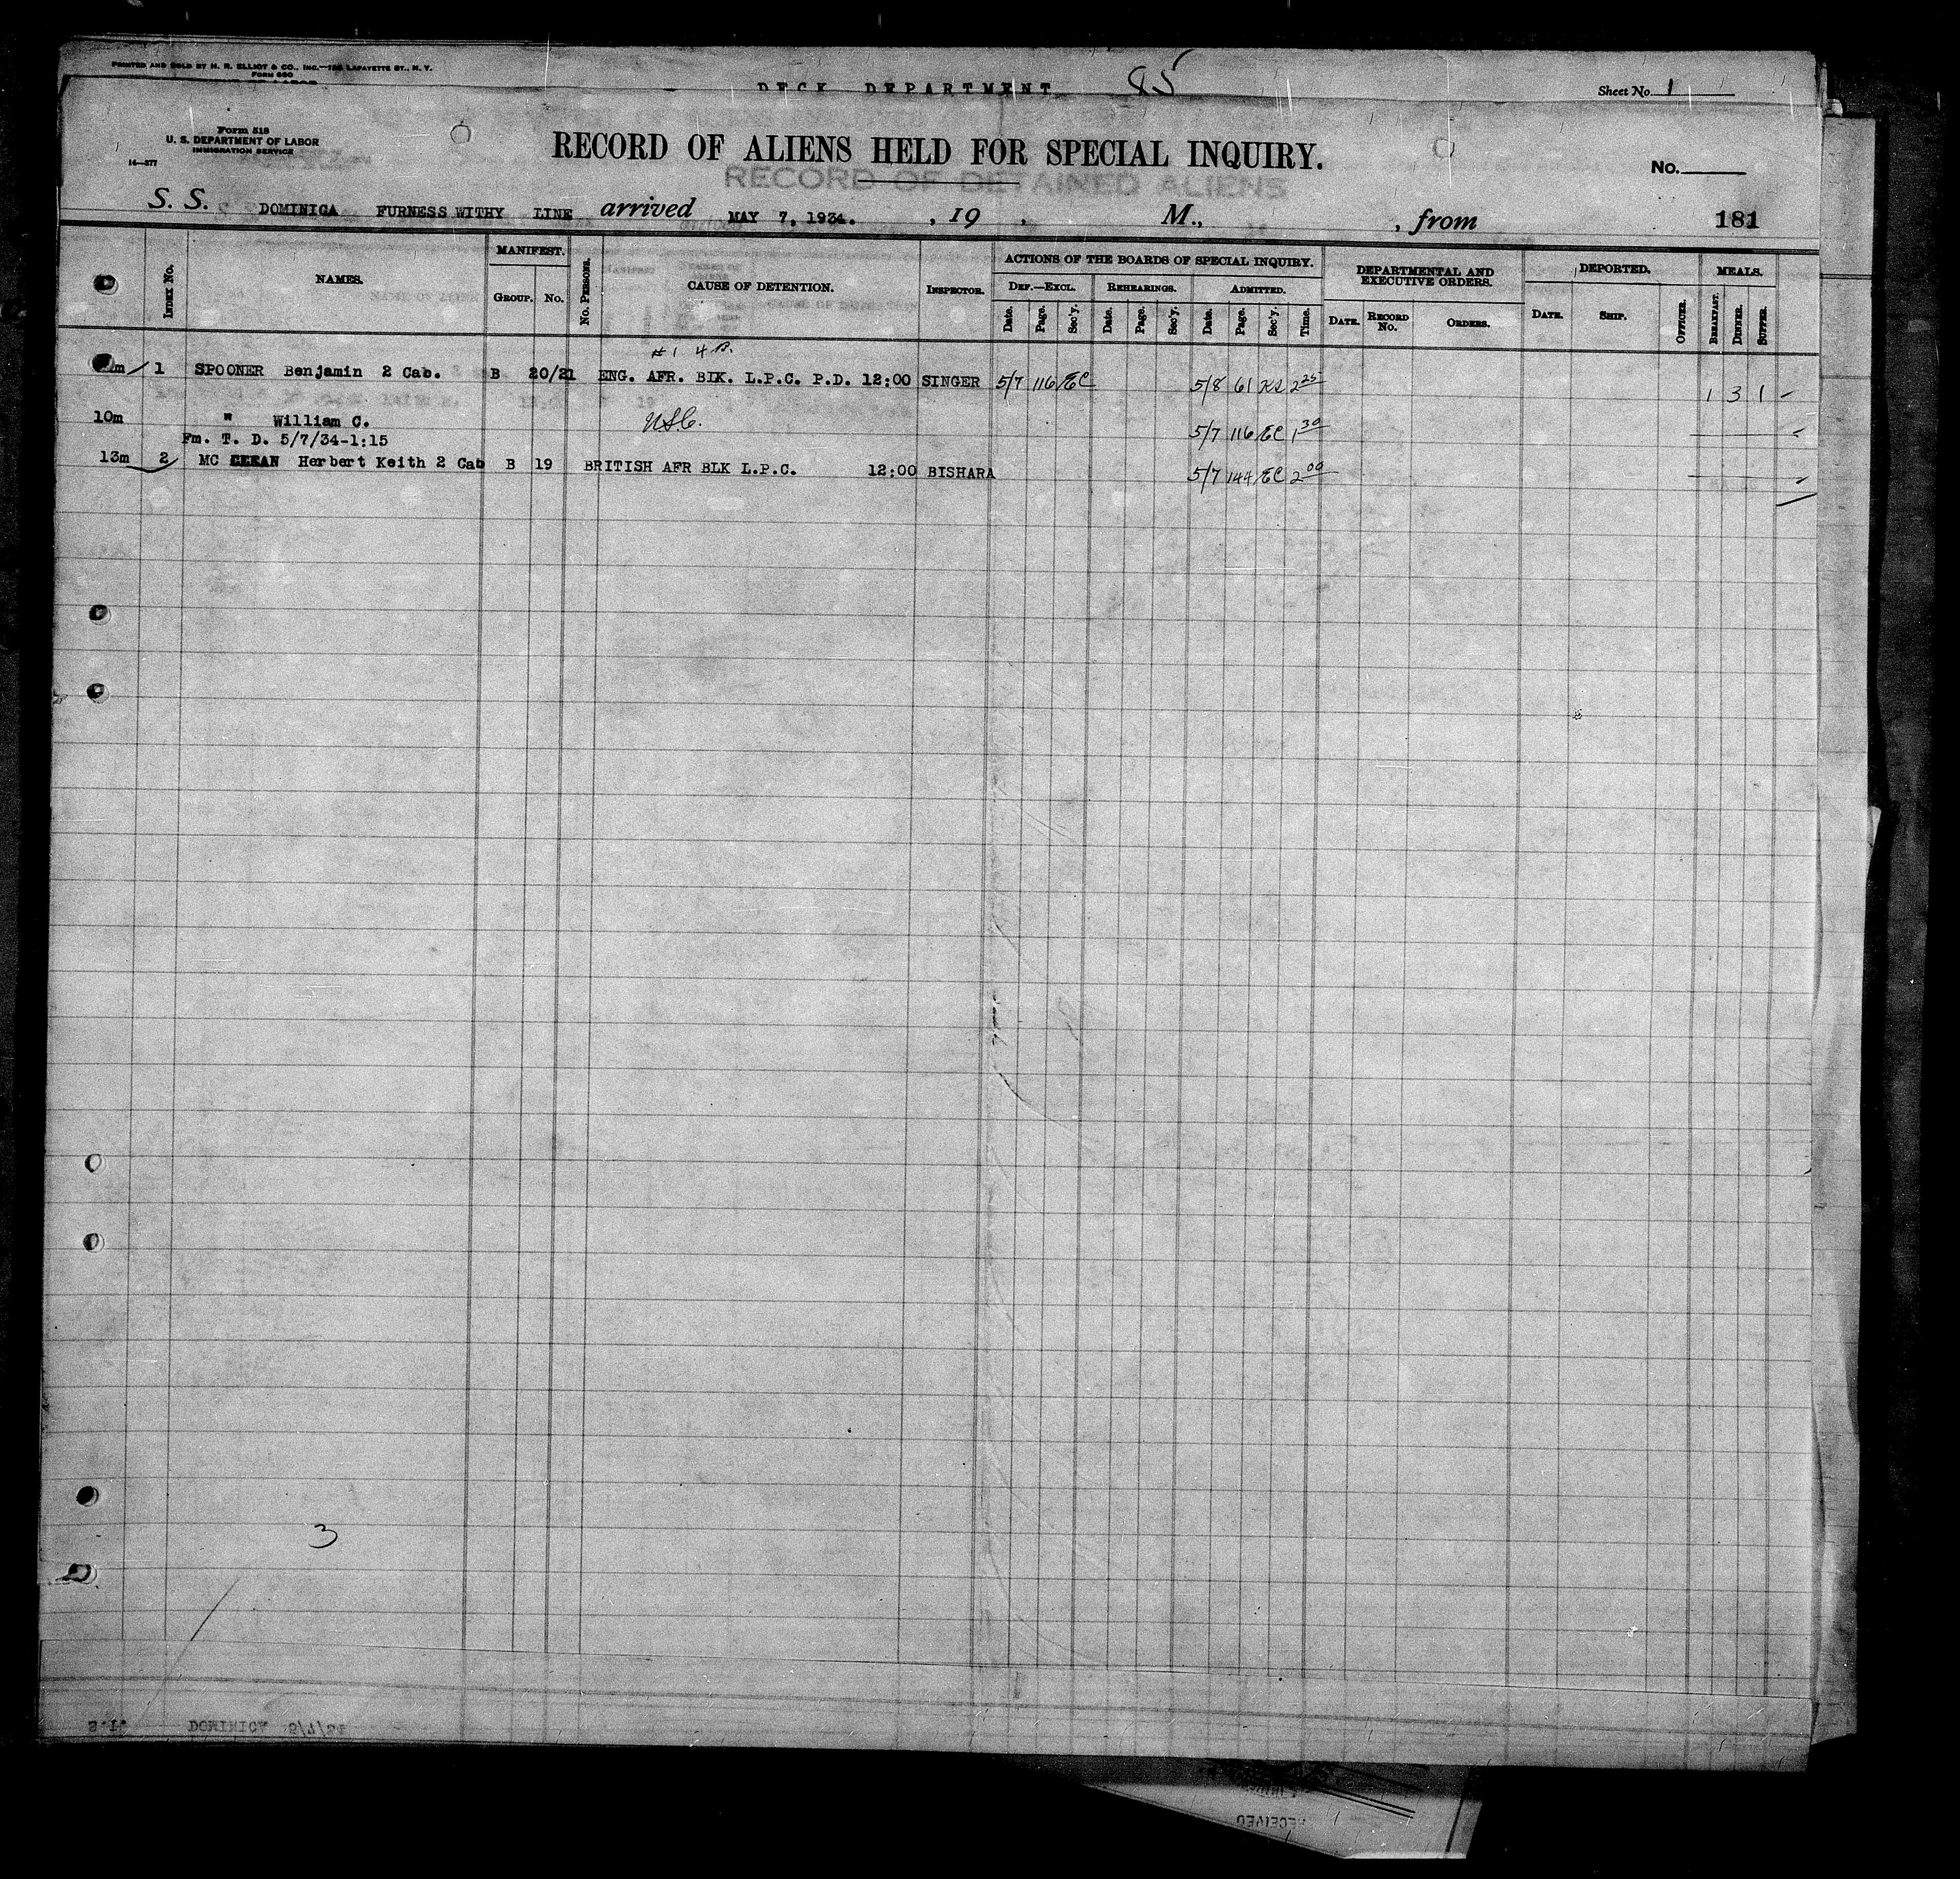 PRINTED AND SOLD BY H. R. ELLIOT & CO., INC.— LAFAYETTE ST., N. Y.
FORM 660
DECK DEPARTMENT 85
Sheet No. 1
Form 518
U. S. DEPARTMENT OF LABOR
IMMIGRATION SERVICE
14—577
RECORD OF ALIENS HELD FOR SPECIAL INQUIRY.
No.
RECORD OF DETAINED ALIENS
S. S. DOMINICA FURNESS WITHY LINE arrived MAY 7, 1934. , 19 , M., , from 181
INDEX No. NAMES. MANIFEST. GROUP. No. No. PERSONS. CAUSE OF DETENTION. INSPECTOR. ACTIONS OF THE BOARDS OF SPECIAL INQUIRY. DEF.—EXCL. Date. Page. Sec'y. REHEARINGS. Date. Page. Sec'y. ADMITTED. Date. Page. Sec'y. Time. DEPARTMENTAL AND EXECUTIVE ORDERS. DATE. RECORD No. ORDERS. DEPORTED. DATE. SHIP. OFFICER. MEALS. BREAKFAST. DINNER. SUPPER.
#1
m 1 SPOONER Benjamin 2 Cab. B 20/21 ENG. AFR. BIK. L.P.C. P.D. 12:00 SINGER 5/7 116 EC 5/8 61 2 25 1 3 1
10m " William C. USC. 5/7 116 EC 1 30
Fm. T. D. 5/7/34-1:15
13m 2 MC CLEAN Herbert Keith 2 Cab B 19 BRITISH AFR BLK L.P.C. 12:00 BISHARA 5/7 144 EC 2 00
3
S.I. DOMINICA 5/7/34
RECEIVED